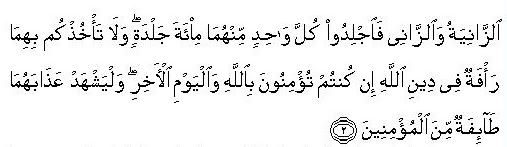 ٱلزَّانِيَةُ وَٱلزَّانِى فَٱجْلِدُوا۟ كُلَّ وَٰحِدٍ مِّنْهُمَا مِا۟ئَةَ جَلْدَةٍ ۖ وَلَا تَأْخُذْكُم بِهِمَا
رَأْفَةٌ فِى دِينِ ٱللَّهِ إِن كُنتُمْ تُؤْمِنُونَ بِٱللَّهِ وَٱلْيَوْمِ ٱلْأَخِرِ ۖ وَلْيَشْهَدْ عَذَابَهُمَا
طَآئِفَةٌ مِّنَ ٱلْمُؤْمِنِينَ ٢